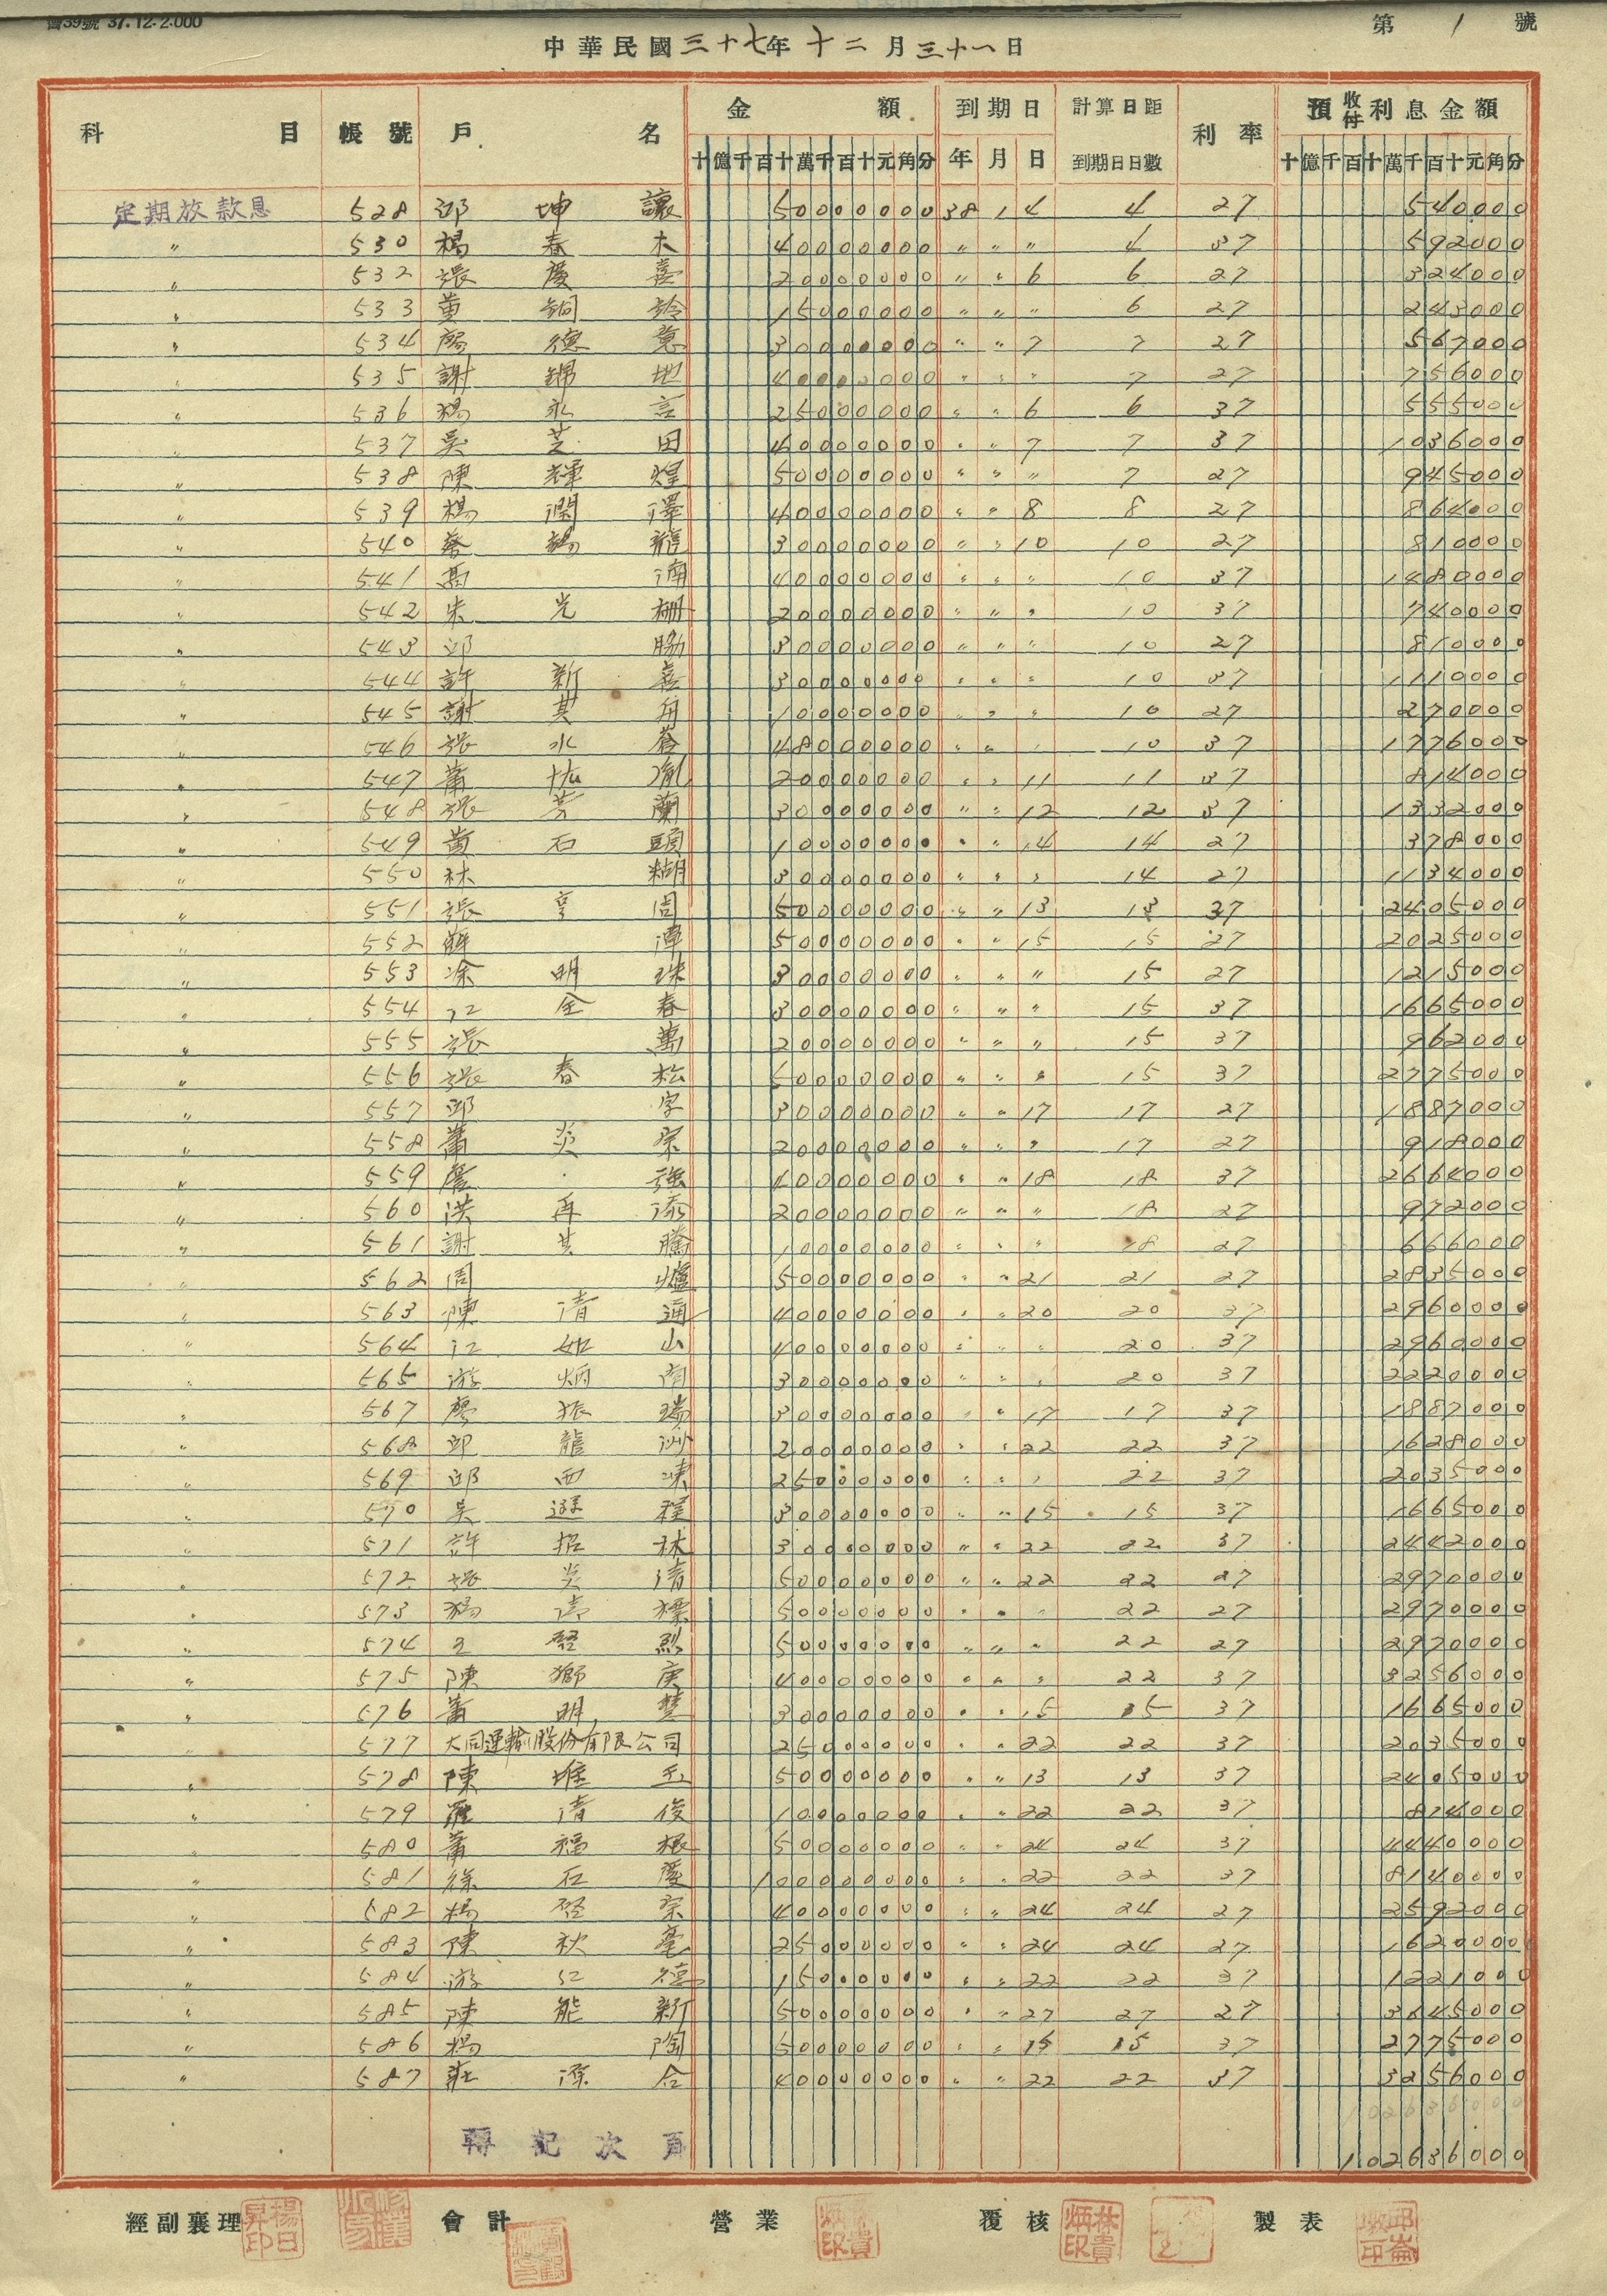 會39號 37.12.2.000
第 1 號
中華民國三十七年十二月三十一日
科目 帳號 戶名 金額 到期日 計算日距到期日日數 利率 預收付利息金額
十億千百十萬千百十元角分 年 月 日 十億千百十萬千百十元角分
定期放款息 528 邱坤讓 50000000 38 1 4 4 27 540000
〃 530 楊春木 40000000 〃 〃 〃 4 37 592000
〃 532 張慶喜 20000000 〃 〃 6 6 27 324000
〃 533 黃銅鈴 15000000 〃 〃 〃 6 27 243000
〃 534 德意 30000000 〃 〃 7 7 27 567000
〃 535 謝錦地 40000000 〃 〃 〃 7 27 756000
〃 536 楊永言 25000000 〃 〃 6 6 37 555000
〃 537 吳芝田 40000000 〃 〃 7 7 37 1036000
〃 538 陳輝煌 50000000 〃 〃 〃 7 27 945000
〃 539 楊潤澤 40000000 〃 〃 8 8 27 864000
〃 540 蔡錫龍 30000000 〃 〃 10 10 27 810000
〃 541 高湳 40000000 〃 〃 〃 10 37 1480000
〃 542 朱光柵 20000000 〃 〃 〃 10 37 740000
〃 543 邱 30000000 〃 〃 〃 10 27 810000
〃 544 許新喜 30000000 〃 〃 〃 10 37 1110000
〃 545 謝其舟 10000000 〃 〃 〃 10 27 270000
〃 546 張水蒼 48000000 〃 〃 〃 10 37 1776000
〃 547 蕭 20000000 〃 〃 11 11 37 814000
〃 548 張芳蘭 30000000 〃 〃 12 12 37 1332000
〃 549 黃石頭 10000000 〃 〃 14 14 27 378000
〃 550 林糊 30000000 〃 〃 〃 14 27 1134000
〃 551 張亨周 50000000 〃 〃 13 13 37 2405000
〃 552 薛潭 50000000 〃 〃 15 15 27 2025000
〃 553 涂明珠 30000000 〃 〃 〃 15 27 1215000
〃 554 江金春 30000000 〃 〃 〃 15 37 1665000
〃 555 張萬 20000000 〃 〃 〃 15 37 962000
〃 556 張春松 50000000 〃 〃 〃 15 37 2775000
〃 557 邱字 30000000 〃 〃 17 17 27 1887000
〃 558 蕭炎宗 20000000 〃 〃 〃 17 27 918000
〃 559 詹強 40000000 〃 〃 18 18 37 2664000
〃 560 洪再添 20000000 〃 〃 〃 18 27 972000
〃 561 謝其騰 10000000 〃 〃 〃 18 27 666000
〃 562 周爐 50000000 〃 〃 21 21 27 2835000
〃 563 陳清通 40000000 〃 〃 20 20 37 2960000
〃 564 江如山 40000000 〃 〃 〃 20 37 2960000
〃 565 游炳南 30000000 〃 〃 〃 20 37 2220000
〃 567 廖振瑞 30000000 〃 〃 17 17 37 1887000
〃 568 邱龍 20000000 〃 〃 22 22 37 1628000
〃 569 邱西 25000000 〃 〃 〃 22 37 2035000
〃 570 吳程 30000000 〃 〃 15 15 37 1665000
〃 571 許招林 30000000 〃 〃 22 22 37 2442000
〃 572 張炎清 50000000 〃 〃 22 22 27 2970000
〃 573 楊標 50000000 〃 〃 〃 22 27 2970000
〃 574 王啓烈 50000000 〃 〃 〃 22 27 2970000
〃 575 陳獅庚 40000000 〃 〃 〃 22 37 3256000
〃 576 蕭明 30000000 〃 〃 15 15 37 1665000
〃 577 大同運輸股份有限公司 25000000 〃 〃 22 22 37 2035000
〃 578 陳堆玉 50000000 〃 〃 13 13 37 2405000
〃 579 羅清俊 10000000 〃 〃 22 22 37 814000
〃 580 蕭福根 50000000 〃 〃 24 24 37 4440000
〃 581 徐石慶 100000000 〃 〃 22 22 37 8140000
〃 582 楊啓宗 40000000 〃 〃 24 24 27 2592000
〃 583 陳秋 25000000 〃 〃 24 24 27 1620000
〃 584 游江德 15000000 〃 〃 22 22 37 1221000
〃 585 陳能新 50000000 〃 〃 27 27 27 3645000
〃 586 楊陶 50000000 〃 〃 15 15 37 2775000
〃 587 莊添合 40000000 〃 〃 22 22 37 3256000
102636000
轉記次頁 102636000
經副襄理 楊日昇印 會計 營業 覆核 林貴炳印 製表